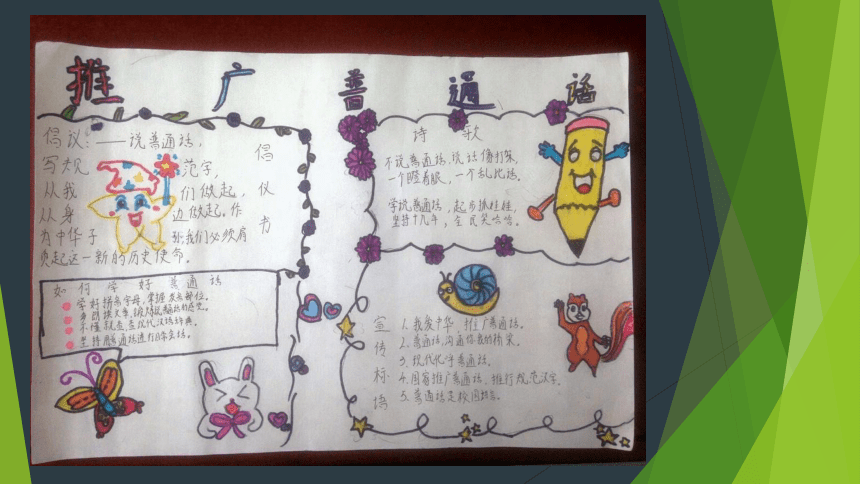 推广普通话
倡议:——说普通话,
写规范字,
从我们做起,
从身边做起。作
为中华子孙我们必须肩
负起这一新的历史使命。
倡仪书
如何学好普通话
学好拼音字母,掌握发音部位。
不懂就查查现代汉语辞典。
坚持用普通话进行日常会话。
诗歌
不说普通话,谈话像打架,
一个瞪着眼,一个乱比话。
学说普通话,起步抓娃娃,
坚持十几年,全民笑哈哈。
宣传标语
1.我爱中华 推广普通话。
2.普通话,沟通你我的桥梁。
3.现代化学普通话。
4.国家推广普通话、推行规范汉字。
5.普通话是校园语言。